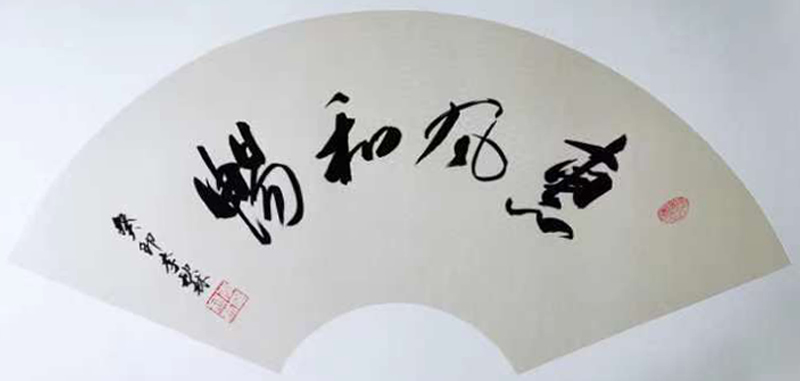 惠风和畅
癸卯李